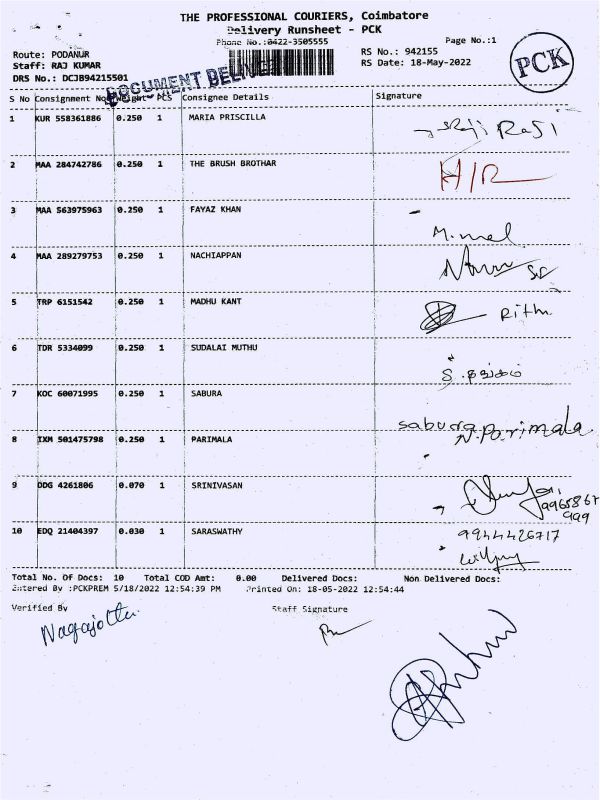 THE PROFESSIONAL COURIERS, Coimbatore
Delivery Runsheet - PCK
Phone No.:0422-3505555
Page No.:1
Route: PODANUR
RS No.: 942155
Staff: RAJ KUMAR
RS Date: 18-May-2022
DRS No.: DCJB94215501
PCK
DOCUMENT
S No Consignment No Weight PCS Consignee Details Signature
1 KUR 558361886 0.250 1 MARIA PRISCILLA Raji
2 MAA 284742786 0.250 1 THE BRUSH BROTHAR H/R
3 MAA 563975963 0.250 1 FAYAZ KHAN
4 MAA 289279753 0.250 1 NACHIAPPAN
5 TRP 6151542 0.250 1 MADHU KANT Rithu
6 TDR 5334099 0.250 1 SUDALAI MUTHU
7 KOC 60071995 0.250 1 SABURA sabura
8 IXM 501475798 0.250 1 PARIMALA N.Parimala
9 DDG 4261806 0.070 1 SRINIVASAN
9965867
999
10 EDQ 21404397 0.030 1 SARASWATHY 9944426717
Total No. Of Docs: 10 Total COD Amt: 0.00 Delivered Docs: Non Delivered Docs:
Entered By :PCKPREM 5/18/2022 12:54:39 PM Printed On: 18-05-2022 12:54:44
Verified By Staff Signature